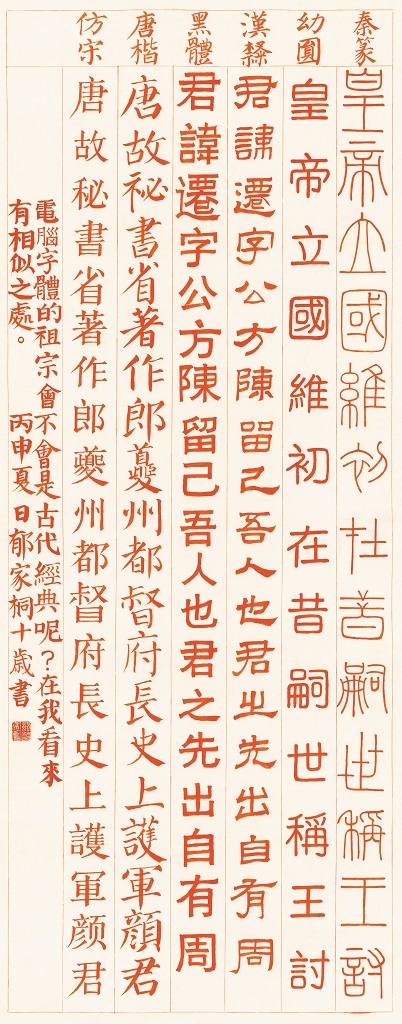 秦篆
皇帝立國維初在昔嗣世稱王討
幼圓
皇帝立國維初在昔嗣世稱王討
漢隸
君諱遷字公方陳留己吾人也君之先出自有周
黑體
君諱遷字公方陳留己吾人也君之先出自有周
唐楷
唐故祕書省著作郎夔州都督府長史上護軍顏君
仿宋
唐故秘書省著作郎夔州都督府長史上護軍颜君
電腦字體的祖宗會不會是古代經典呢？在我看來
有相似之處。 丙申夏日郁家桐十歲書